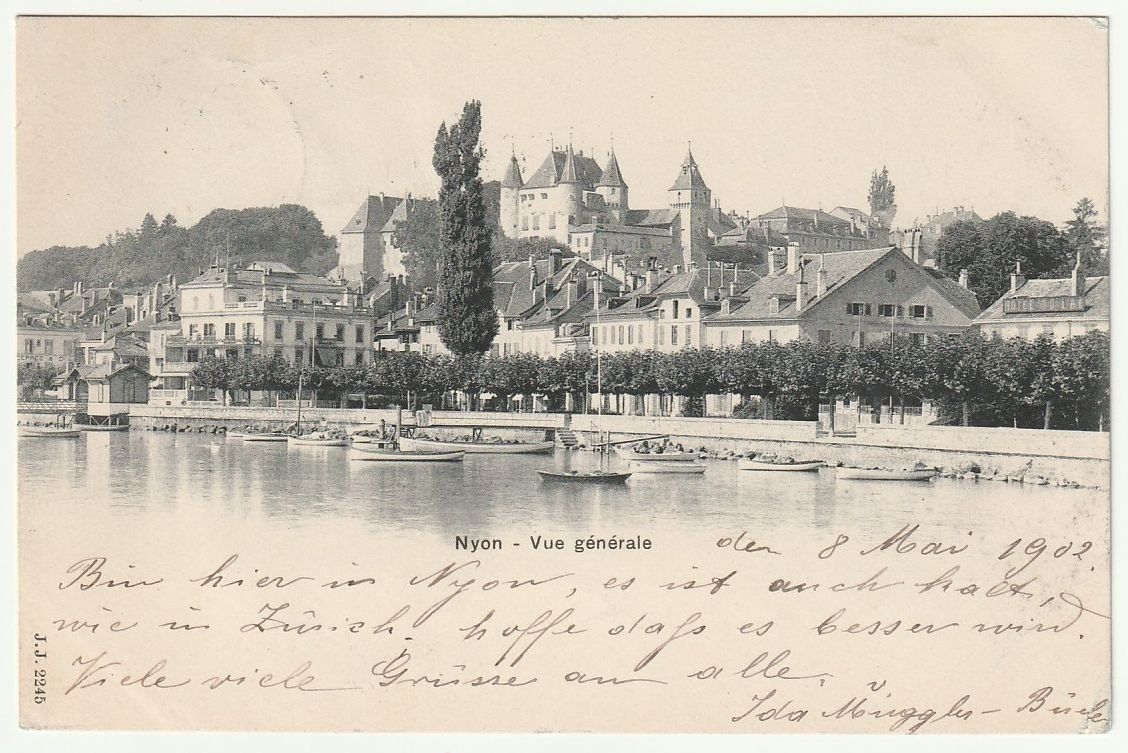 Nyon - Vue générale
den 8 Mai 1902.
Bin hier in Nyon, es ist auch kalt,
wie in Zürich. hoffe daß es besser wird.
Viele viele Grüsse an alle.
Ida
J.J. 2245